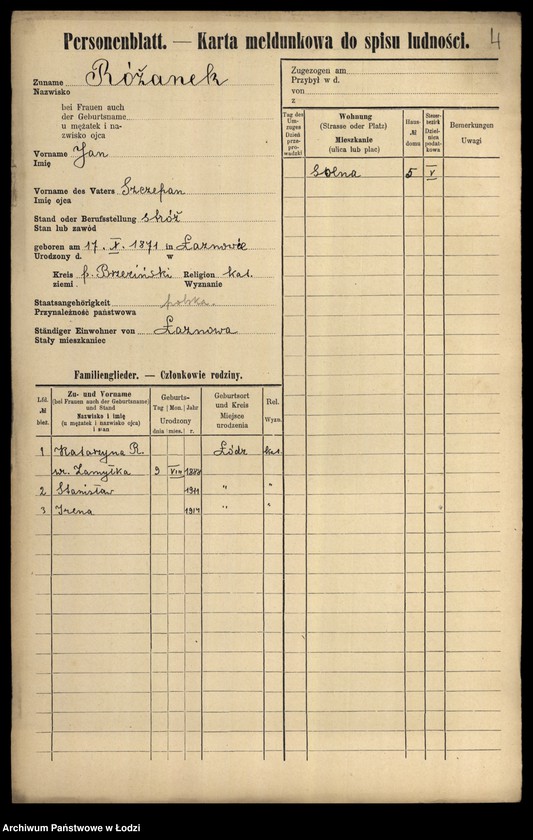 Personenblatt. — Karta meldunkowa do spisu ludności.
4
Zuname Różanek
Nazwisko
bei Frauen auch
der Geburtsname
u mężatek i na-
zwisko ojca
Vorname Jan
Imię
Vorname des Vaters Szczepan
Imię ojca
Stand oder Berufsstellung stróż
Stan lub zawód
geboren am 17. X. 1871 in Łaznowie
Urodzony d. w
Kreis p. Brzeziński Religion kat.
ziemi Wyznanie
Staatsangehörigkeit polska.
Przynależność państwowa
Ständiger Einwohner von Łaznowa
Stały mieszkaniec
Zugezogen am
Przybył w d.
von
z
Tag des Um-zuges Dzień prze-pro-wadzki
Wohnung (Strasse oder Platz) Mieszkanie (ulica lub plac)
Haus-№ domu
Steuer-bezirk Dziel-nica podat-kowa
Bemerkungen Uwagi
Solna 5 V
Familienglieder. — Członkowie rodziny.
Lfd. № bież.
Zu- und Vorname (bei Frauen auch der Geburtsname) und Stand Nazwisko i imię (u mężatek i nazwisko ojca) i stan
Geburts- Tag Mon. Jahr Urodzony dnia mies. r.
Geburtsort und Kreis Miejsce urodzenia
Rel. Wyzn.
1 Katarzyna R. Łódź kat.
Zamyłka 9 VIII
2 Stanisław 1911 " "
3 Irena " "
Archiwum Państwowe w Łodzi